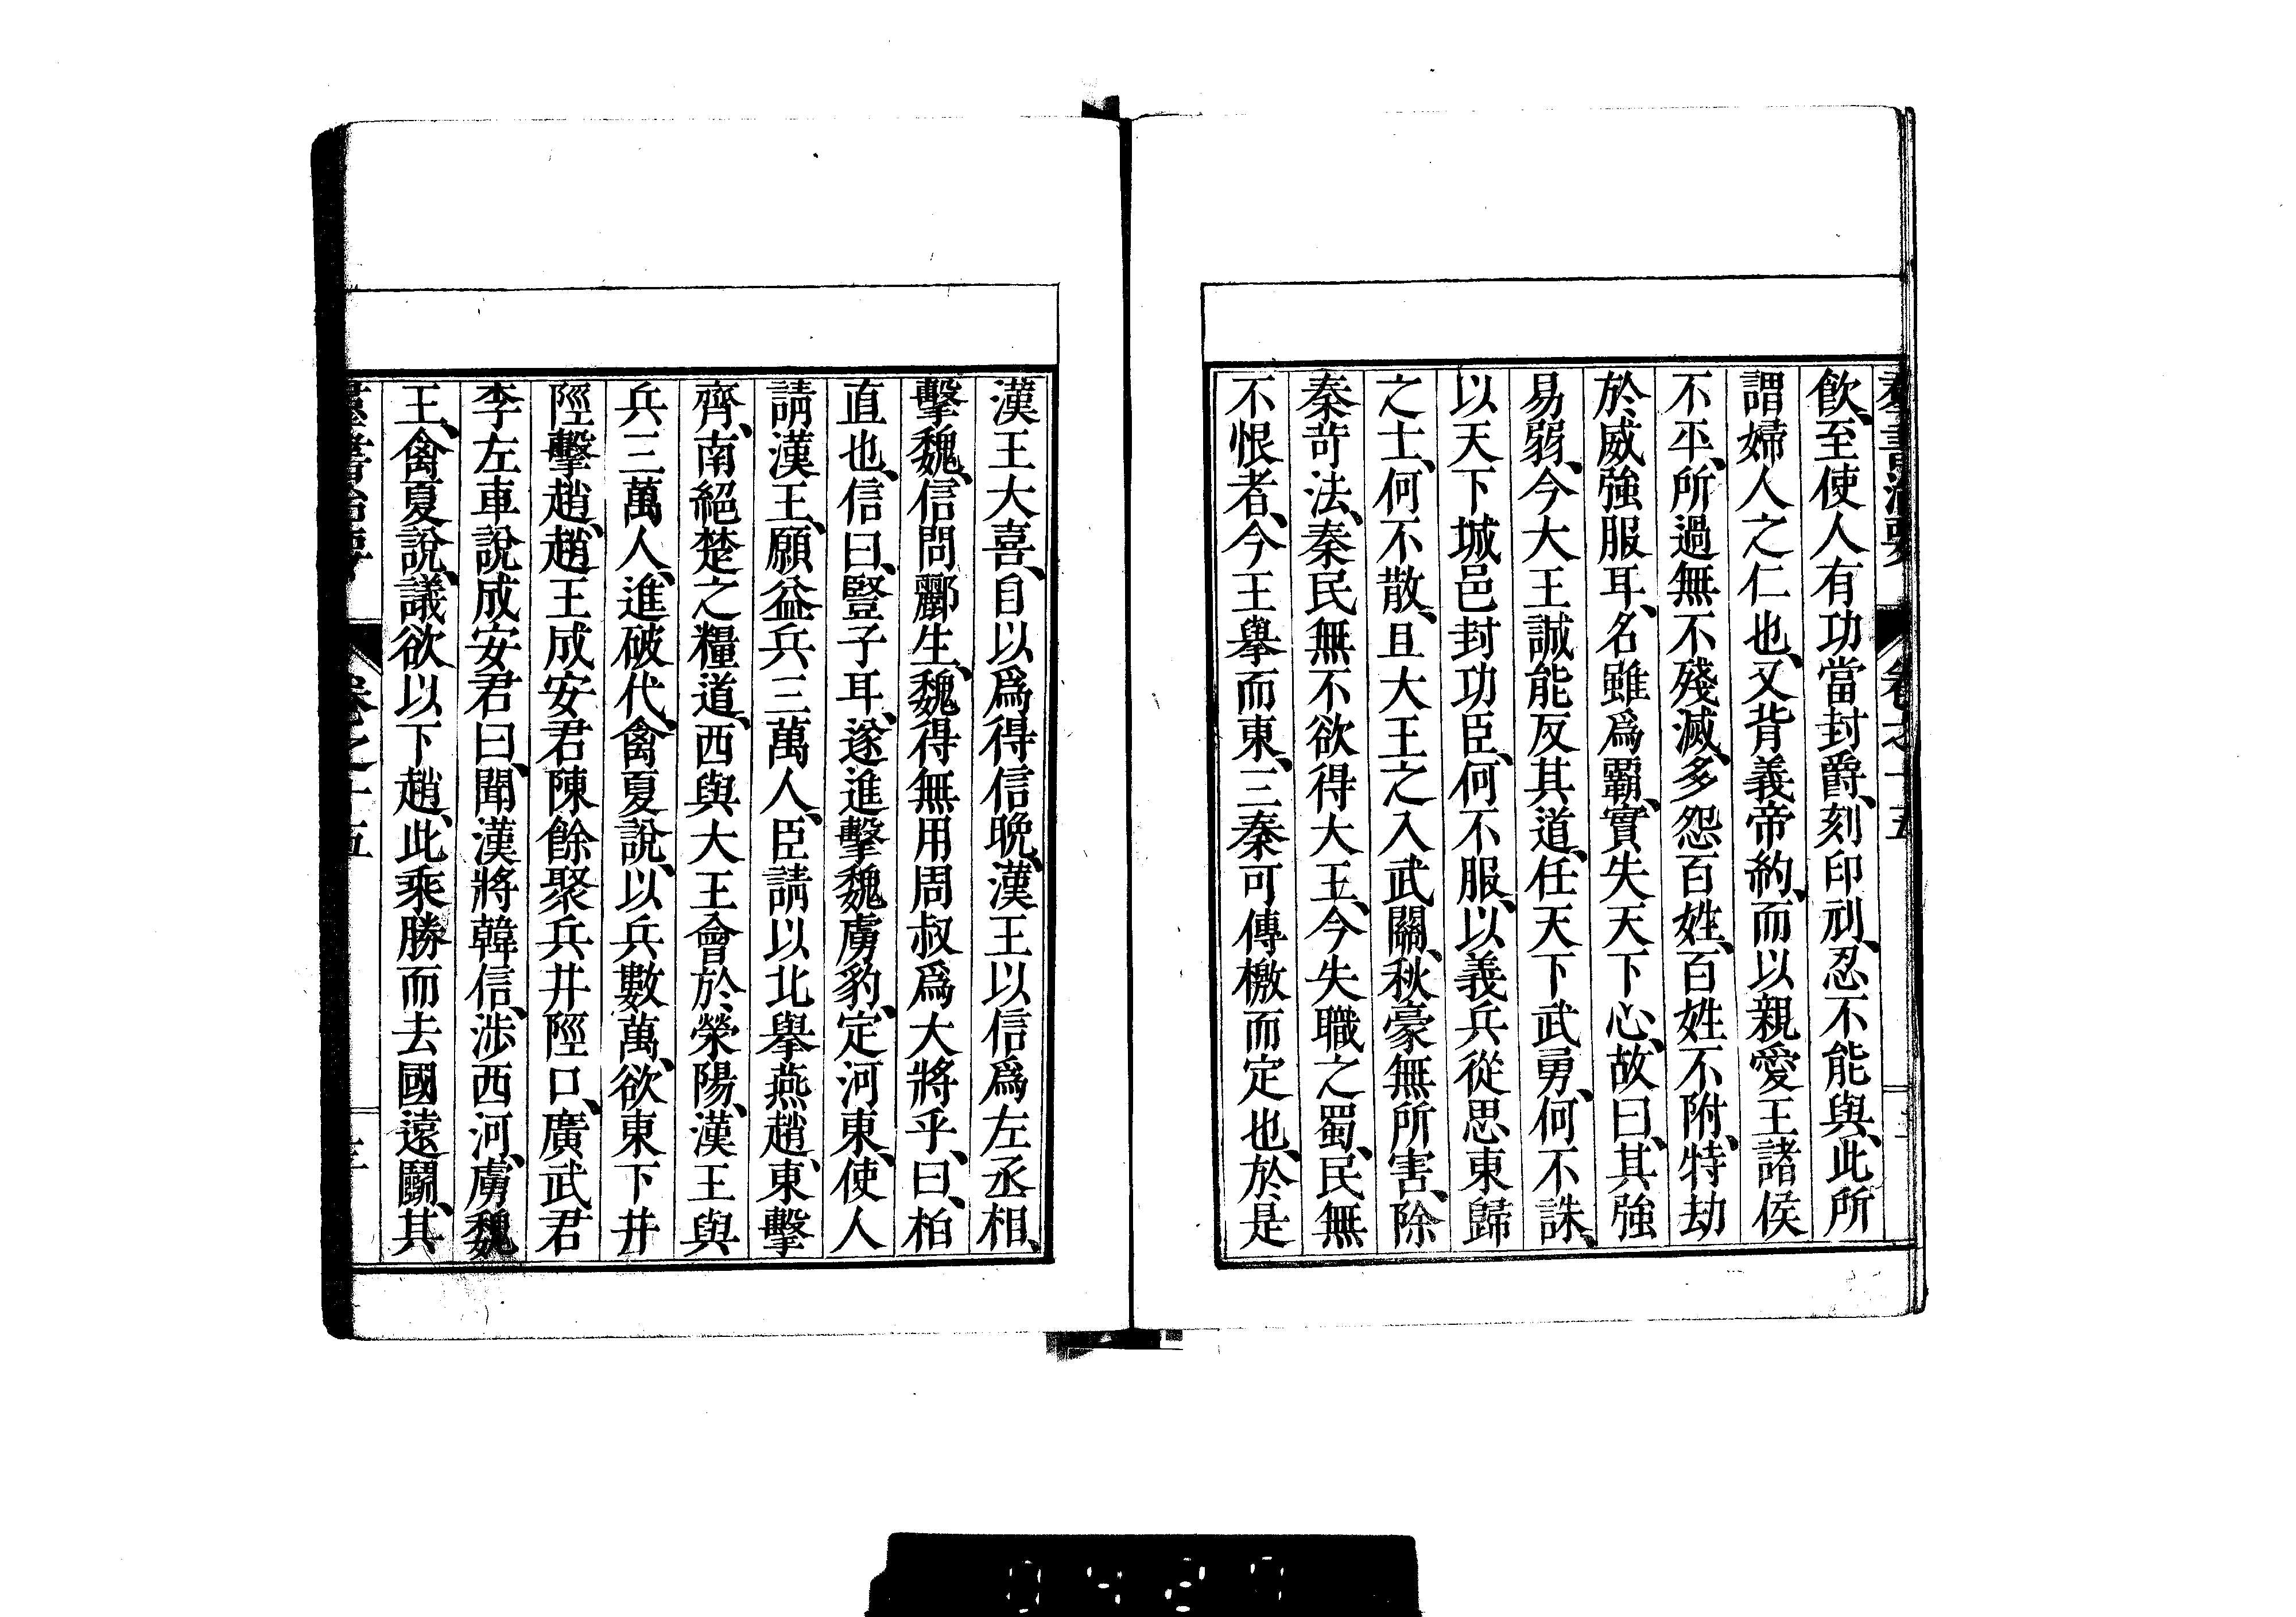 羣書治要 卷之十五
飲、至使人有功當封爵、刻印刓、忍不能與、此所
謂婦人之仁也、又背義帝約、而以親愛王諸侯
不平、所過無不殘滅、多怨百姓、百姓不附、特劫
於威強服耳、名雖爲霸、實失天下心、故曰、其強
易弱、今大王誠能反其道、任天下武勇、何不誅、
以天下城邑封功臣、何不服、以義兵從思東歸
之士、何不散、且大王之入武關、秋豪無所害、除
秦苛法、秦民無不欲得大王、今失職之蜀、民無
不恨者、今王舉而東、三秦可傳檄而定也、於是
漢王大喜、自以爲得信晚、漢王以信爲左丞相、
擊魏、信問酈生、魏得無用周叔爲大將乎、曰、柏
直也、信曰、豎子耳、遂進擊魏虜豹、定河東、使人
請漢王、願益兵三萬人、臣請以北舉燕趙、東擊
齊、南絕楚之糧道、西與大王會於滎陽、漢王與
兵三萬人、進破代、禽夏說、以兵數萬、欲東下井
陘擊趙、趙王成安君陳餘聚兵井陘口、廣武君
李左車說成安君曰、聞漢將韓信、涉西河、虜魏
王、禽夏說、議欲以下趙、此乘勝而去國遠鬭、其
羣書治要 卷之十五